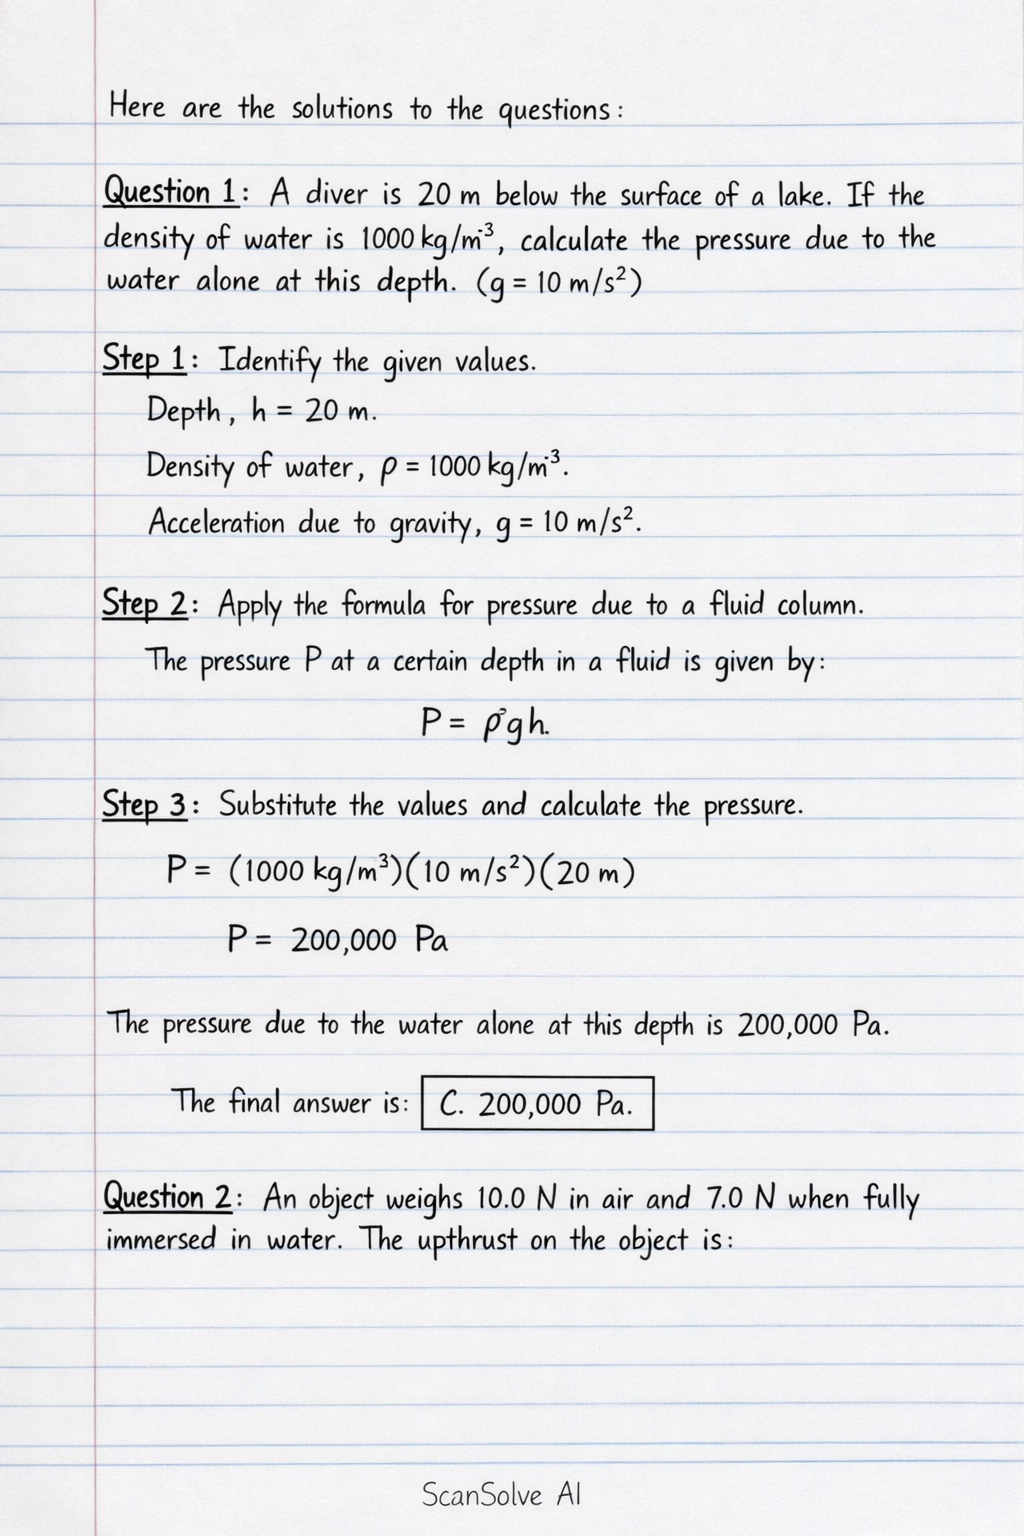 Here are the solutions to the questions:
Question 1: A diver is 20 m below the surface of a lake. If the
density of water is 1000 kg/m³, calculate the pressure due to the
water alone at this depth. (g = 10 m/s²)
Step 1: Identify the given values.
Depth, h = 20 m.
Density of water, ρ = 1000 kg/m³.
Acceleration due to gravity, g = 10 m/s².
Step 2: Apply the formula for pressure due to a fluid column.
The pressure P at a certain depth in a fluid is given by:
P = ρgh.
Step 3: Substitute the values and calculate the pressure.
P = (1000 kg/m³)(10 m/s²)(20 m)
P = 200,000 Pa
The pressure due to the water alone at this depth is 200,000 Pa.
The final answer is: C. 200,000 Pa.
Question 2: An object weighs 10.0 N in air and 7.0 N when fully
immersed in water. The upthrust on the object is:
ScanSolve AI